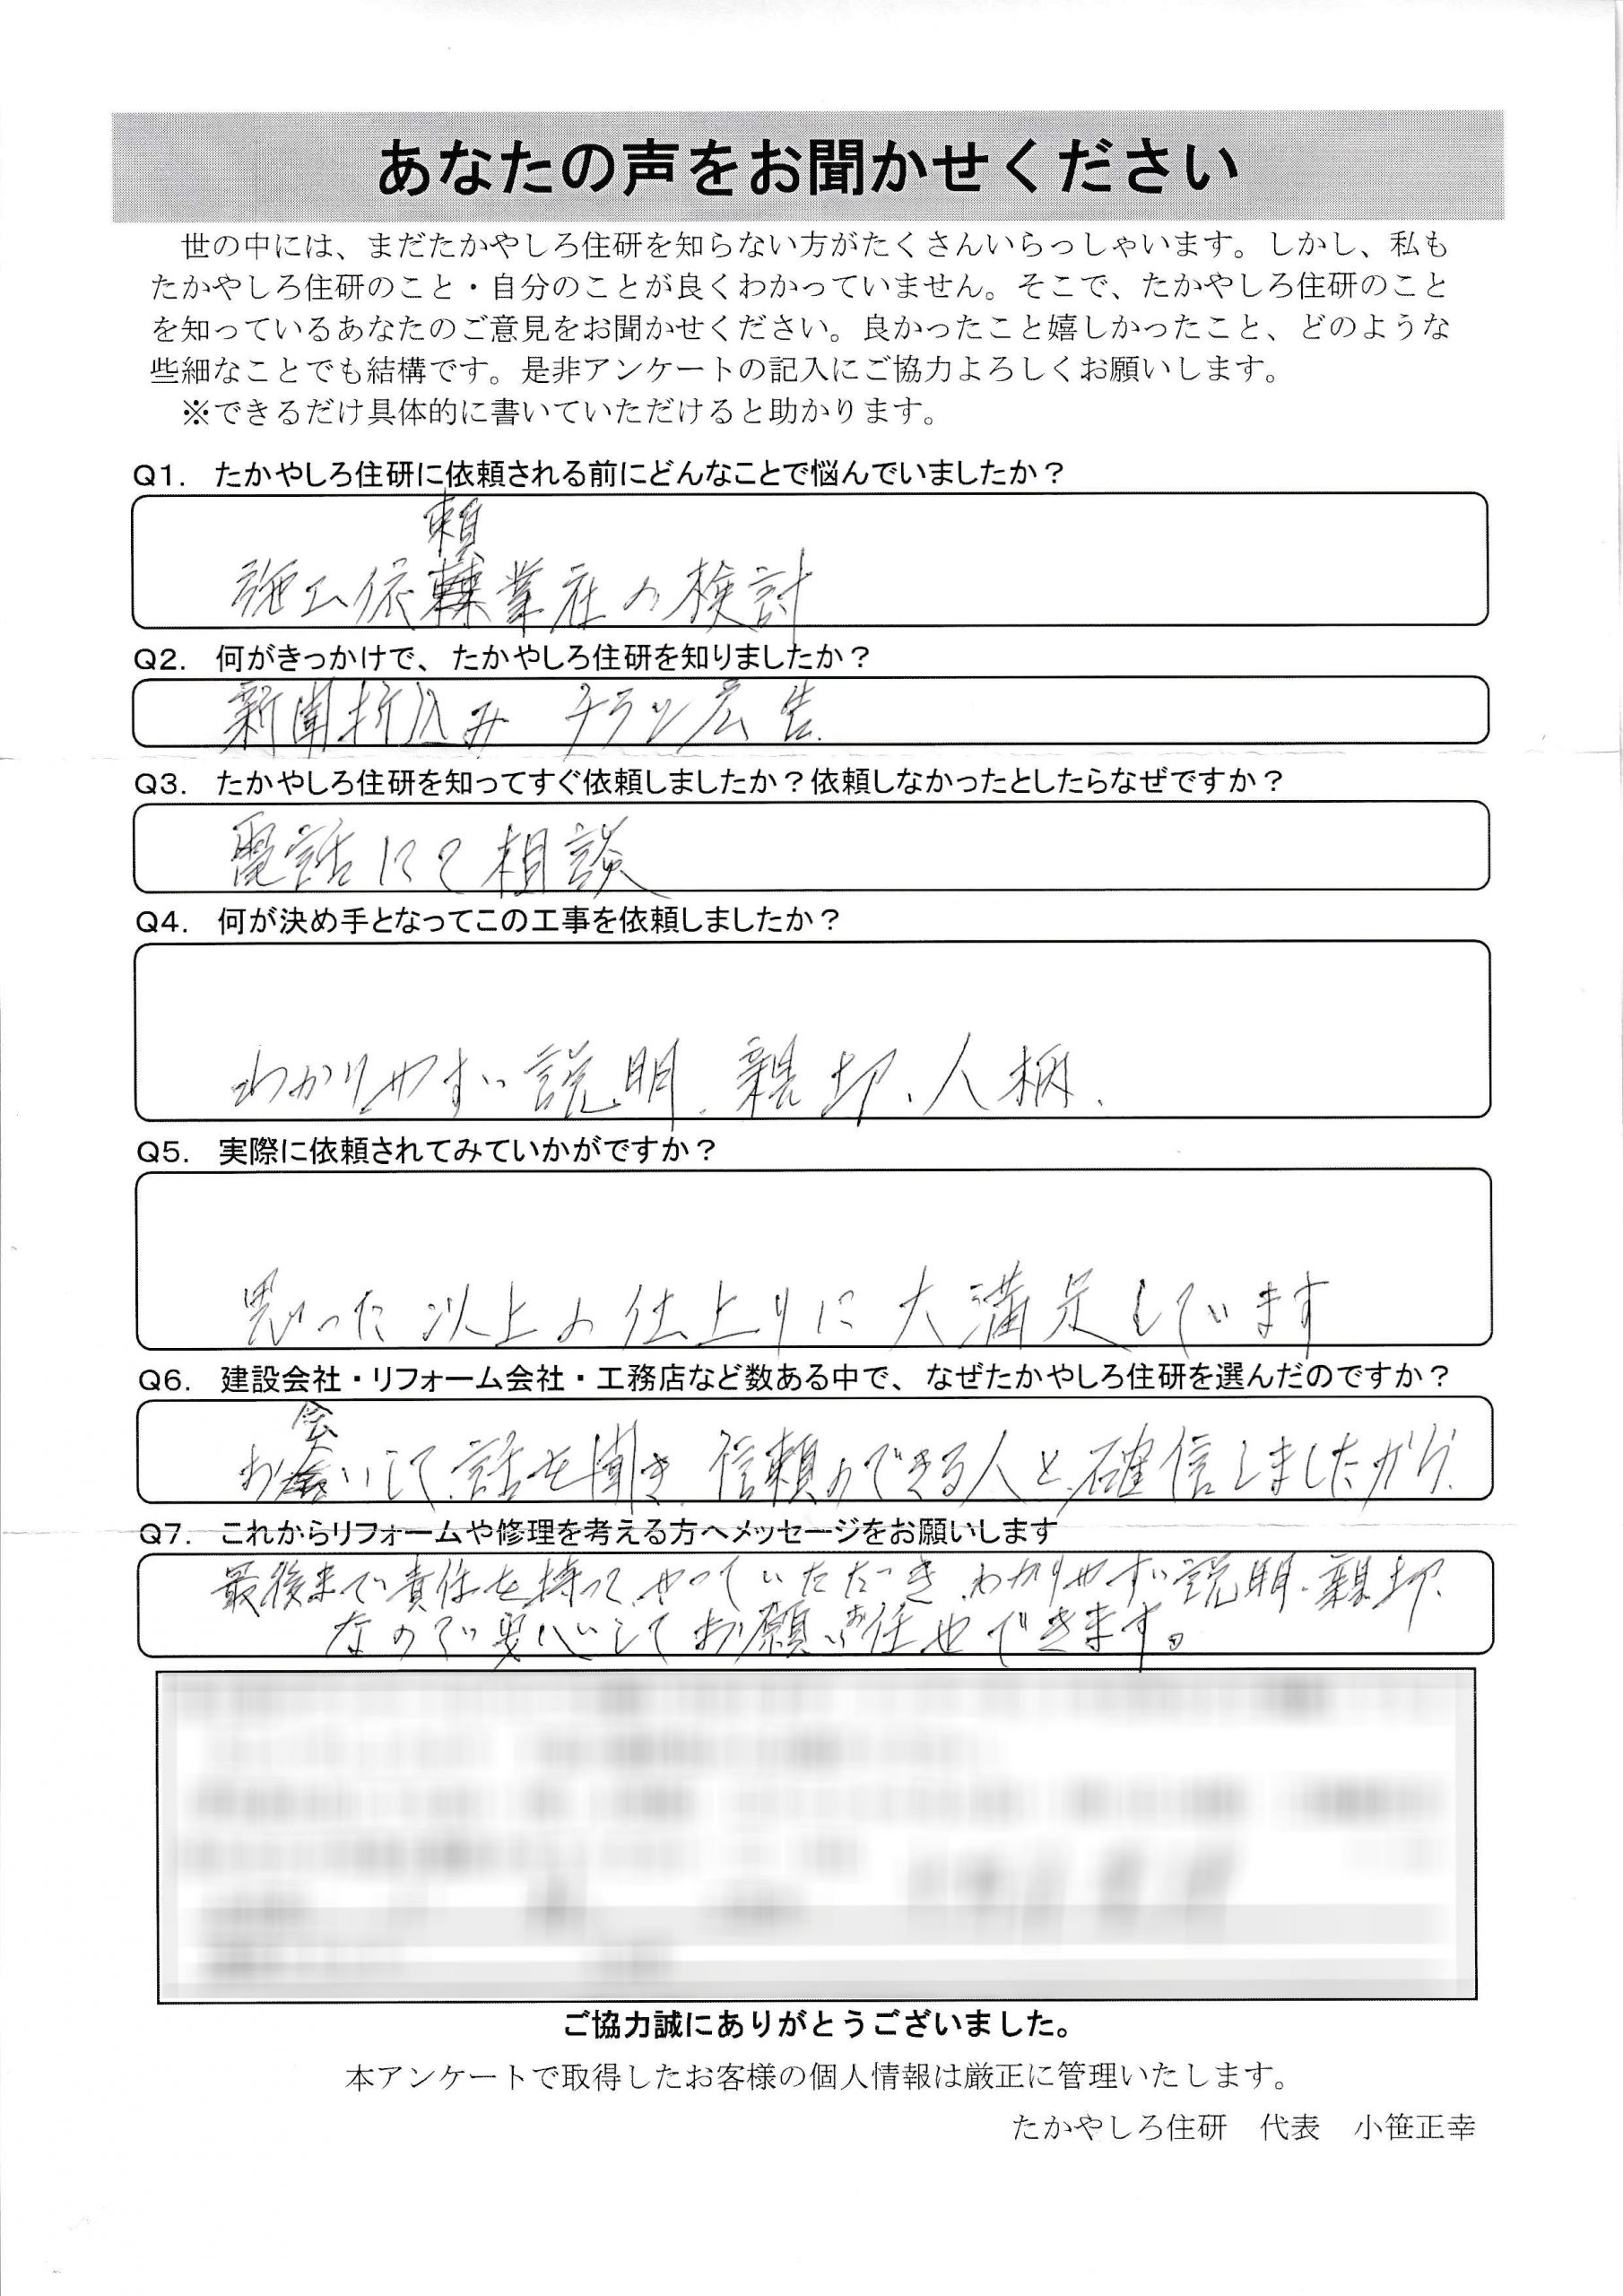 あなたの声をお聞かせください
世の中には、まだたかやしろ住研を知らない方がたくさんいらっしゃいます。しかし、私も
たかやしろ住研のこと・自分のことが良くわかっていません。そこで、たかやしろ住研のこと
を知っているあなたのご意見をお聞かせください。良かったこと嬉しかったこと、どのような
些細なことでも結構です。是非アンケートの記入にご協力よろしくお願いします。
※できるだけ具体的に書いていただけると助かります。
Q1. たかやしろ住研に依頼される前にどんなことで悩んでいましたか？
施工依頼業社の検討
Q2. 何がきっかけで、たかやしろ住研を知りましたか？
新聞折込み チラシ広告.
Q3. たかやしろ住研を知ってすぐ依頼しましたか？依頼しなかったとしたらなぜですか？
電話にて相談
Q4. 何が決め手となってこの工事を依頼しましたか？
わかりやすい説明、親切、人柄、
Q5. 実際に依頼されてみていかがですか？
思った以上の仕上りに大満足しています
Q6. 建設会社・リフォーム会社・工務店など数ある中で、なぜたかやしろ住研を選んだのですか？
お会いして、話を聞き、信頼のできる人と、確信しましたから、
Q7. これからリフォームや修理を考える方へメッセージをお願いします
最後まで責任を持って、やっていただき、わかりやすい説明、親切、
なので安心してお願いお任せできます。
ご協力誠にありがとうございました。
本アンケートで取得したお客様の個人情報は厳正に管理いたします。
たかやしろ住研 代表 小笹正幸